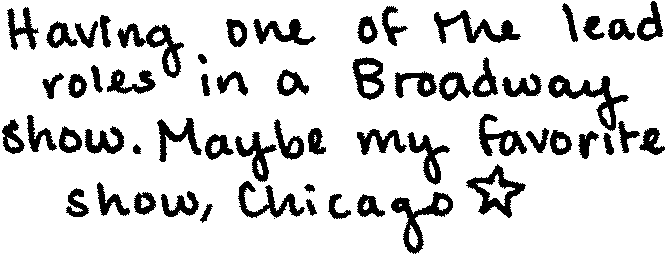 Having one of the lead
roles in a Broadway
show. Maybe my favorite
show, Chicago ☆